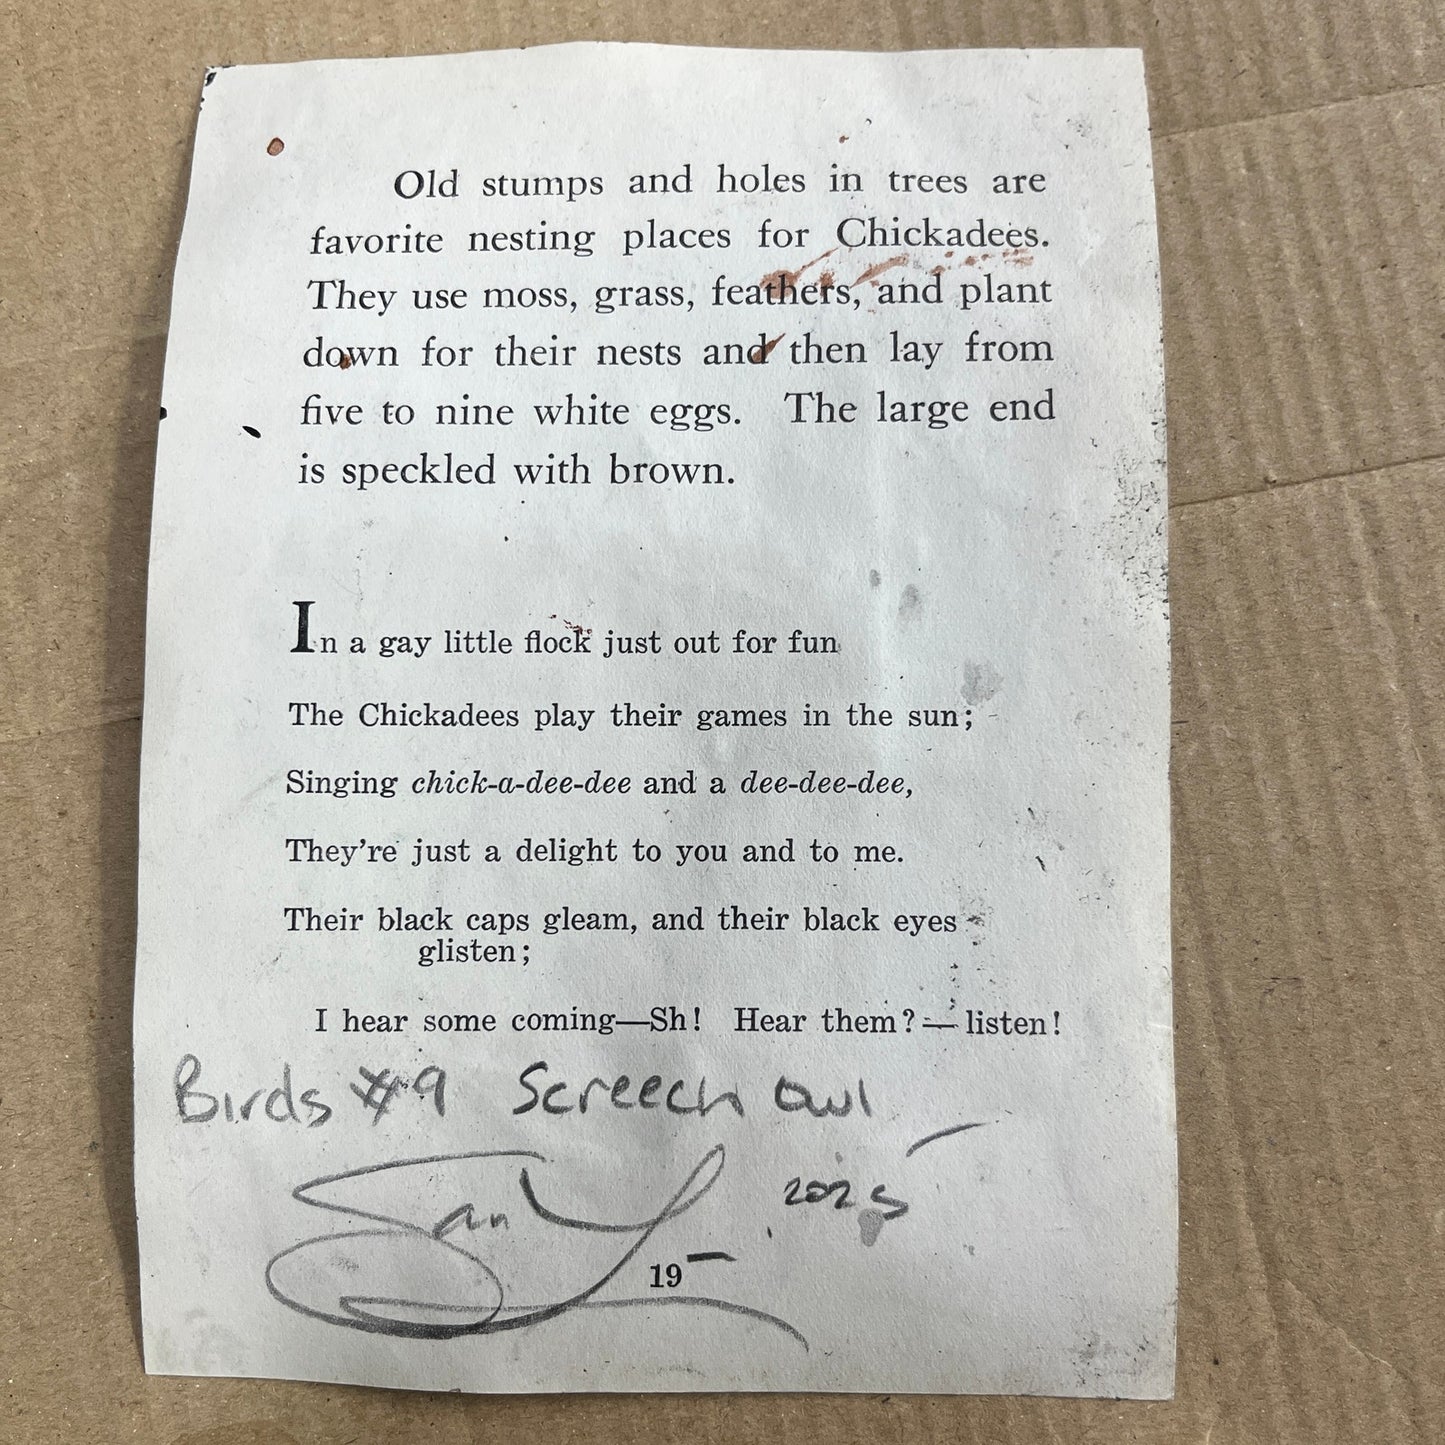 Old stumps and holes in trees are
favorite nesting places for Chickadees.
They use moss, grass, feathers, and plant
down for their nests and then lay from
five to nine white eggs. The large end
is speckled with brown.
In a gay little flock just out for fun
The Chickadees play their games in the sun;
Singing chick-a-dee-dee and a dee-dee-dee,
They're just a delight to you and to me.
Their black caps gleam, and their black eyes
glisten;
I hear some coming—Sh! Hear them?—listen!
Birds #9 Screech Owl
2025
19